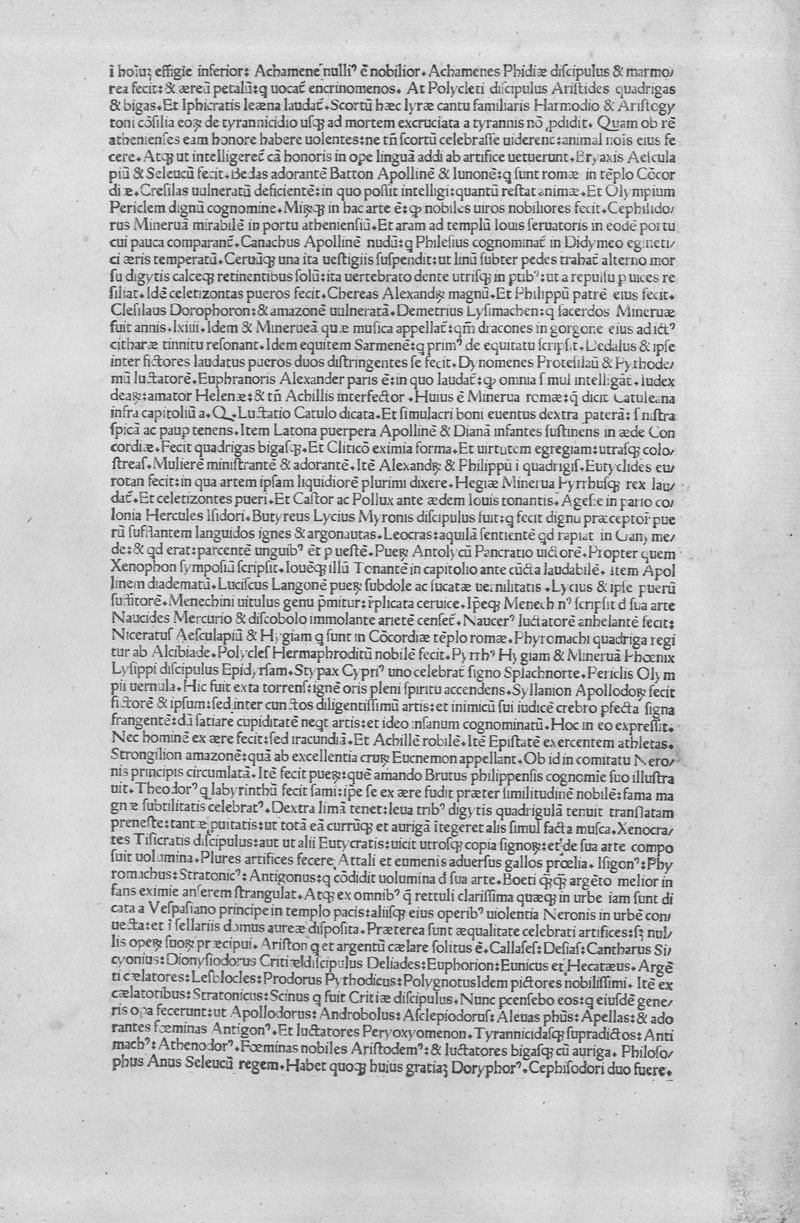 ī hoīuꝫ effigie inferior: Achamene nulliꝰ ē nobilior. Achamenes Phidiæ diſcipulus & marmo/
rea fecit: & æreū petalū: q uocat̃ encrinomenos. At Polycleti diſcipulus Ariſtides quadrigas
& bigas. Et Iphicratis leæna laudat̃. Scortū hæc lyræ cantu familiaris Harmodio & Ariſtogy
toni cōſilia eoꝝ de tyrannicidio uſqꝫ ad mortem excruciata a tyrannis nō ꝓdidit. Quam ob rē
athenienſes eam honore habere uolentes: ne tñ ſcortū celebraſſe uiderent̃: animal noīs eius fe
cere. Atqꝫ ut intelligeret̃ cā honoris in ope linguā addi ab artifice uetuerunt. Bryaxis Aeſcula
piū & Seleucū fecit. Bedas adorantē Batton Apollinē & Iunonē: q ſunt romæ in tēplo Cōcor
diæ. Creſilas uulneratū deficientē: in quo poſſit intelligi: quantū reſtat animæ. Et Olympium
Periclem dignū cognomine. Miꝝqꝫ in hac arte ē: ꝙ nobiles uiros nobiliores fecit. Cephiſido/
rus Mineruā mirabilē in portu athenienſiū. Et aram ad templū Iouis ſeruatoris in eodē portu
cui pauca comparant̃. Canachus Apollinē nudū: q Phileſius cognominat̃ in Didymeo egineti/
ci æris temperatū. Ceruūqꝫ una ita ueſtigiis ſuſpendit: ut linū ſubter pedes trahat̃ alterno mor
ſu digytis calceqꝫ retinentibus ſolū: ita uertebrato dente utriſqꝫ in ptibꝰ: ut a repulſu p uices re
ſiliat. Idē celetizontas pueros fecit. Chereas Alexandꝝ magnū. Et Philippū patrē eius fecit.
Cleſilaus Dorophoron: & amazonē uulneratā. Demetrius Lyſimachen: q ſacerdos Mineruæ
fuit annis. lxiiii. Idem & Mineruā quæ muſica appellat̃: qm̃ dracones in gorgone eius ad ictꝰ
citharæ tinnitu reſonant. Idem equitem Sarmenē: q primꝰ de equitatu ſcripſit. Dedalus & ipſe
inter fictores laudatus pueros duos diſtringentes ſe fecit. Dynomenes Proteſilaū & Pythode/
mū luctatorē. Euphranoris Alexander paris ē: in quo laudat̃: ꝙ omnia ſimul intelligāt̃. Iudex
deaꝝ: amator Helenæ: & tñ Achillis interfector. Huius ē Minerua romæ: q̄ dicit̃ Catuleana
infra capitoliū a. Q. Luctatio Catulo dicata. Et ſimulacri boni euentus dextra paterā: ſiniſtra
ſpicā ac paup tenens. Item Latona puerpera Apollinē & Dianā infantes ſuſtinens in æde Con
cordiæ. Fecit quadrigas bigaſqꝫ. Et Cliticō eximia forma. Et uirtutem egregiam: utraſqꝫ colo/
ſtreaſ. Mulierē miniſtrantē & adorantē. Itē Alexandꝝ & Philippū i quadrigiſ. Eutyclides eu/
rotan fecit: in qua artem ipſam liquidiorē plurimi dixere. Hegiæ Minerua Pyrrhuſqꝫ rex lau/
dat̃. Et celetizontes pueri. Et Caſtor ac Pollux ante ædem Iouis tonantis. Ageſiæ in pario co/
lonia Hercules Iſidori. Butyreus Lycius Myronis diſcipulus fuit: q fecit dignū præceptore pue
rū ſufflantem languidos ignes & argonautas. Leocras: aquilā ſentientē qd rapiat in Ganyme/
de: & qd erat: parcentē unguibꝰ ēt p ueſtē. Pueꝝ Antolycū Pancratio uictorē. Propter quem
Xenophon ſympoſiū ſcripſit. Iouēqꝫ illū Tonantē in capitolio ante cūcta laudabilē. Item Apol
linem diadematū. Luciſcus Langonē pueꝝ ſubdole ac fucatæ uernilitatis. Lycius & ipſe puerū
ſuffitorē. Menechini uitulus genu p̄mitur: r̄plicata ceruice. Ip̄eqꝫ Menechinꝰ ſcripſit d ſua arte
Naucides Mercurio & diſcobolo immolante arietē cenſet̃. Naucerꝰ luctatorē anhelantē fecit:
Niceratuſ Aeſculapiū & Hygiam q ſunt in Cōcordiæ tēplo romæ. Phyromachi quadriga regi
tur ab Alcibiade. Polycleſ Hermaphroditū nobilē fecit. Pyrrhꝰ Hygiam & Mineruā Phœnix
Lyſippi diſcipulus Epidyrſam. Stypax Cypriꝰ uno celebrat̃ ſigno Splachnorte. Periclis Olym
pii uernula. Hic fuit exta torrenſ: ignē oris pleni ſpiritu accendens. Syllanion Apollodoꝝ fecit
fictorē & ipſum: ſed inter cunctos diligentiſſimū artis: et inimicū ſui iudicē crebro pfecta ſigna
frangentē: dū ſatiare cupiditatē neqt artis: et ideo inſanum cognominatū. Hoc in eo expreſſit.
Nec hominē ex ære fecit: ſed iracundiā. Et Achillē nobilē. Itē Epiſtatē exercentem athletas.
Strongilion amazonē: quā ab excellentia cruꝝ Eucnemon appellant. Ob id in comitatu Nero/
nis principis circumlatā. Itē fecit pueꝝ: quē amando Brutus philippenſis cognomie ſuo illuſtra
uit. Theodorꝰ q labyrinthū fecit ſami: ip̄e ſe ex ære fudit præter ſimilitudinē nobilē: fama ma
gnæ ſubtilitatis celebratꝰ. Dextra limā tenet: leua tribꝰ digytis quadrigulā tenuit tranſlatam
preneſte: tantæ puitatis: ut totā eā currūqꝫ et aurigā ītegeret alis ſimul facta muſca. Xenocra/
tes Tiſicratis diſcipulus: aut ut alii Eutycratis: uicit utroſqꝫ copia ſignoꝝ: et de ſua arte compo
ſuit uolumina. Plures artifices fecere Attali et eumenis aduerſus gallos prœlia. Iſigonꝰ: Phy
romachus: Stratonicꝰ: Antigonus: q cōdidit uolumina d ſua arte. Boeti q̄qꝫ argēto melior in
fans eximie anſerem ſtrangulat. Atqꝫ ex omnibꝰ q̄ rettuli clariſſima quæqꝫ in urbe iam ſunt di
cata a Veſpaſiano principe in templo pacis: aliiſqꝫ eius operibꝰ uiolentia Neronis in urbē con/
uecta: et ī ſellariis domus aureæ diſpoſita. Præterea ſunt æqualitate celebrati artifices: ſꝫ nul/
lis opeꝝ ſuoꝝ præcipui. Ariſton q et argentū cælare ſolitus ē. Callaſeſ: Deſiaſ: Cantharus Si/
cyonius: Dionyſiodorus Critiæ diſcipulus Deliades: Euphorion: Eunicus et Hecatæus. Argē
ti cælatores: Leſbocles: Prodorus Pyrhodicus: Polygnotus Idem pictores nobiliſſimi. Itē ex
cælatoribus: Stratonicus: Scinus q fuit Critiæ diſcipulus. Nunc pcenſebo eos: q eiuſdē gene/
ris opa fecerunt: ut Apollodorus: Androbolus: Aſclepiodoruſ: Aleuas phūs: Apellas: & ado
rantes fœminas Antigonꝰ. Et luctatores Peryoxyomenon. Tyrannicidaſqꝫ ſupradictos: Anti
machꝰ: Athenodorꝰ. Fœminas nobiles Ariſtodemꝰ: & luctatores bigaſqꝫ cū auriga. Philoſo/
phus Anus Seleucū regem. Habet quoqꝫ huius gratiaꝫ Doryphorꝰ. Cephiſodori duo fuere.